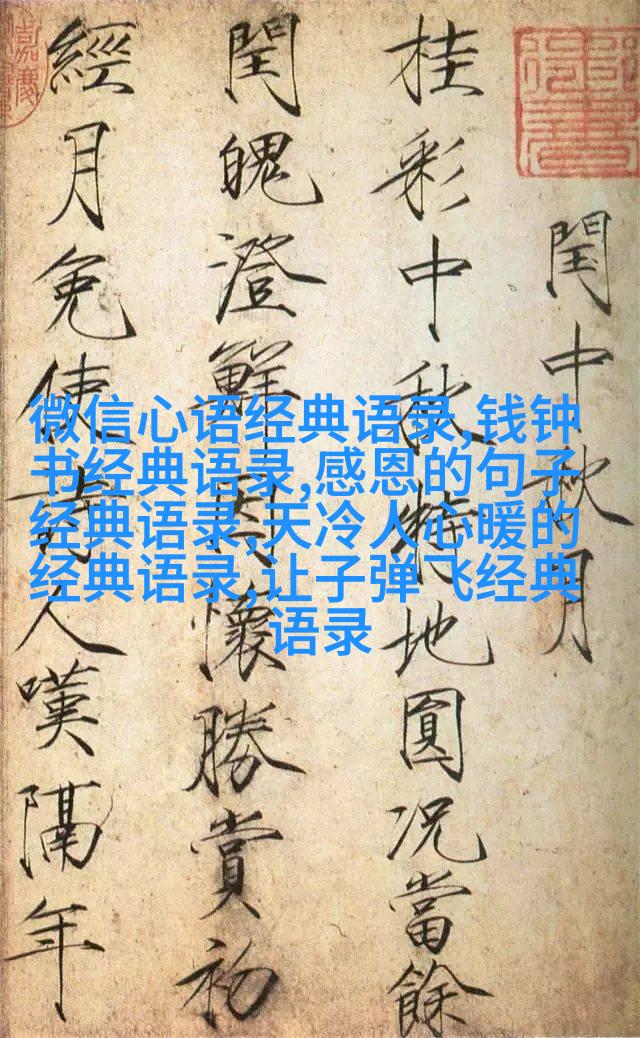 閏中秋月
桂彩中秋特地圓況當餘
閏魄澄鮮因懷勝賞初
經月免使詩人嘆隔年
微信心语经典语录,钱钟
书经典语录,感恩的句子
经典语录,天冷人心暖的
经典语录,让子弹飞经典
语录